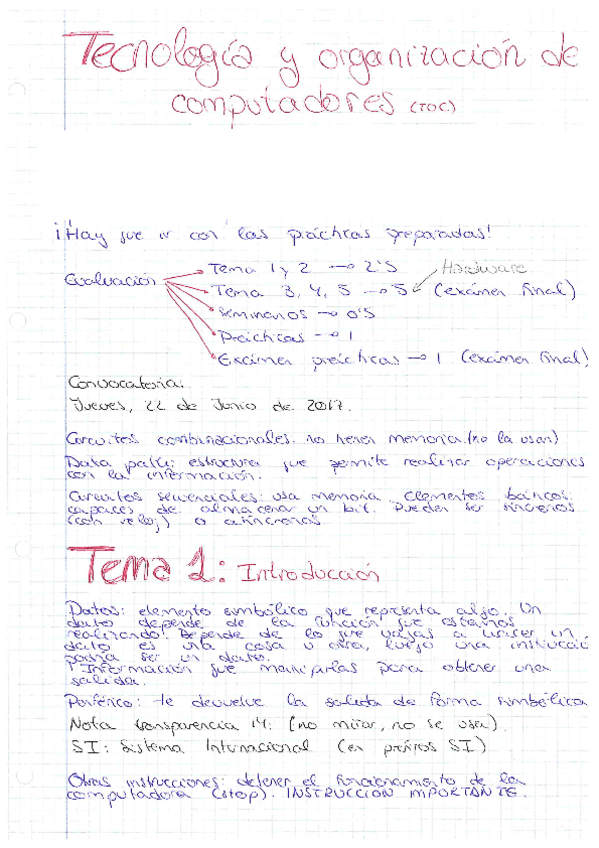 Tecnología y organización de
computadores (TOC)
¡Hay que ir con las prácticas preparadas!
Evaluación
Tema 1 y 2 → 2'5
Hardware
Tema 3, 4, 5 → 5 (exámen final)
Seminarios → 0'5
Prácticas → 1
Exámen prácticas → 1 (exámen final)
Convocatoria:
Jueves, 22 de Junio de 2017.
Circuitos combinacionales: no tienen memoria. (no la usan)
Data path: estructura que permite realizar operaciones
con la información.
Circuitos secuenciales: usa memoria. Elementos básicos:
capaces de almacenar un bit. Pueden ser síncronos
(con reloj) o asíncronos
Tema 1: Introducción
Datos: elemento simbólico que representa algo. Un
dato depende de la función que estamos
realizando. Depende de lo que vayas a hacer un
dato es una cosa u otra, luego una instrucció
podría ser un dato.
Información que manipulas para obtener una
salida.
Periférico: te devuelve la salida de forma simbólica
Nota transparencia 14: (no mirar, no se usa).
SI: Sistema Internacional (en prefijos SI)
Otras instrucciones: detener el funcionamiento de la
computadora (stop). INSTRUCCIÓN IMPORTANTE.